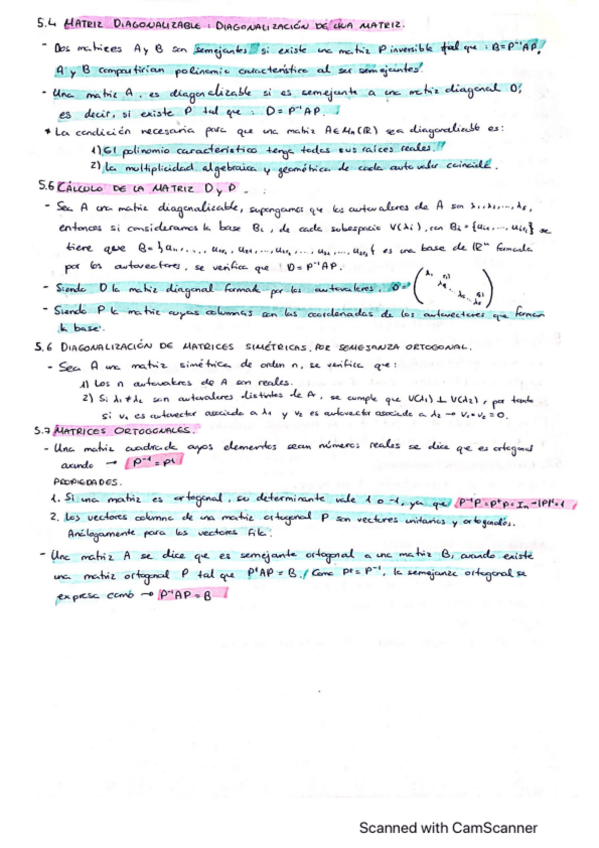 5.4 MATRIZ DIAGONALIZABLE: DIAGONALIZACIÓN DE UNA MATRIZ.
- Dos matrices A y B son semejantes si existe una matriz P inversible tal que: B=P⁻¹AP.
A y B compartirían polinomio característico al ser semejantes.
- Una matriz A, es diagonalizable si es semejante a una matriz diagonal D,
es decir, si existe P tal que: D=P⁻¹AP.
* La condición necesaria para que una matriz A∈Mn(R) sea diagonalizable es:
1) El polinomio característico tenga todas sus raíces reales.
2) la multiplicidad algebraica y geométrica de cada autovalor coincide.
5.6 CÁLCULO DE LA MATRIZ D y P.
- Sea A una matriz diagonalizable, supongamos que los autovalores de A son λ1, λ2, ..., λk,
entonces si consideramos la base Bi, de cada subespacio V(λi), con Bi = {ui1, ..., uiri} se
tiene que B={u11, ..., es una base de Rⁿ formada
por los autovectores, se verifica que: D=P⁻¹AP.
- Siendo D la matriz diagonal formada por los autovalores. D=
- Siendo P la matriz cuyas columnas son las coordenadas de los autovectores que forman
la base.
5.6 DIAGONALIZACIÓN DE MATRICES SIMÉTRICAS, POR SEMEJANZA ORTOGONAL.
- Sea A una matriz simétrica de orden n, se verifica que:
1) Los n autovalores de A son reales.
2) Si λ1≠λ2 son autovalores distintos de A, se cumple que V(λ1) ⊥ V(λ2), por tanto
si v1 es autovector asociado a λ1 y v2 es autovector asociado a λ2 → v1·v2=0.
5.7 MATRICES ORTOGONALES.
- Una matriz cuadrada cuyos elementos sean números reales se dice que es ortogonal
cuando → P⁻¹=Pᵗ
PROPIEDADES.
1. Si una matriz es ortogonal, su determinante vale 1 o -1, ya que P⁻¹P=PᵗP=In→|P|²=1
2. Los vectores columna de una matriz ortogonal P son vectores unitarios y ortogonales.
Análogamente para los vectores fila.
- Una matriz A se dice que es semejante ortogonal a una matriz B, cuando existe
una matriz ortogonal P tal que PᵗAP=B. / Como Pᵗ=P⁻¹, la semejanza ortogonal se
expresa como → P⁻¹AP=B
Scanned with CamScanner